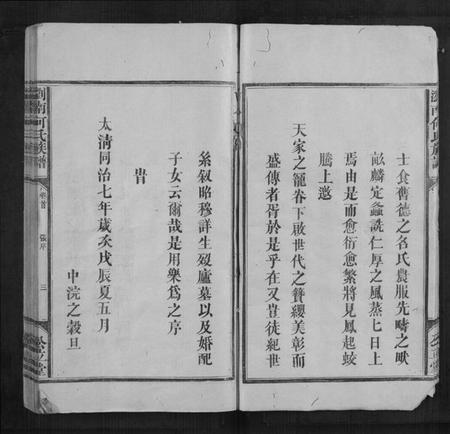 士食舊德之名氏農服先疇之畎
畝麟定螽詵仁厚之風蒸七日上
焉由是而愈衍愈繁將見鳳起蛟
騰上邀
天家之寵眷下啟世代之簪纓美彰而
盛傳者胥於是乎在又豈徒紀世
系叙昭穆詳生歿廬墓以及婚配
子女云爾哉是用樂為之序
旹
太清同治七年歲次戊辰夏五月
中浣之穀旦
瀏南何氏族譜
卷首
張序
三